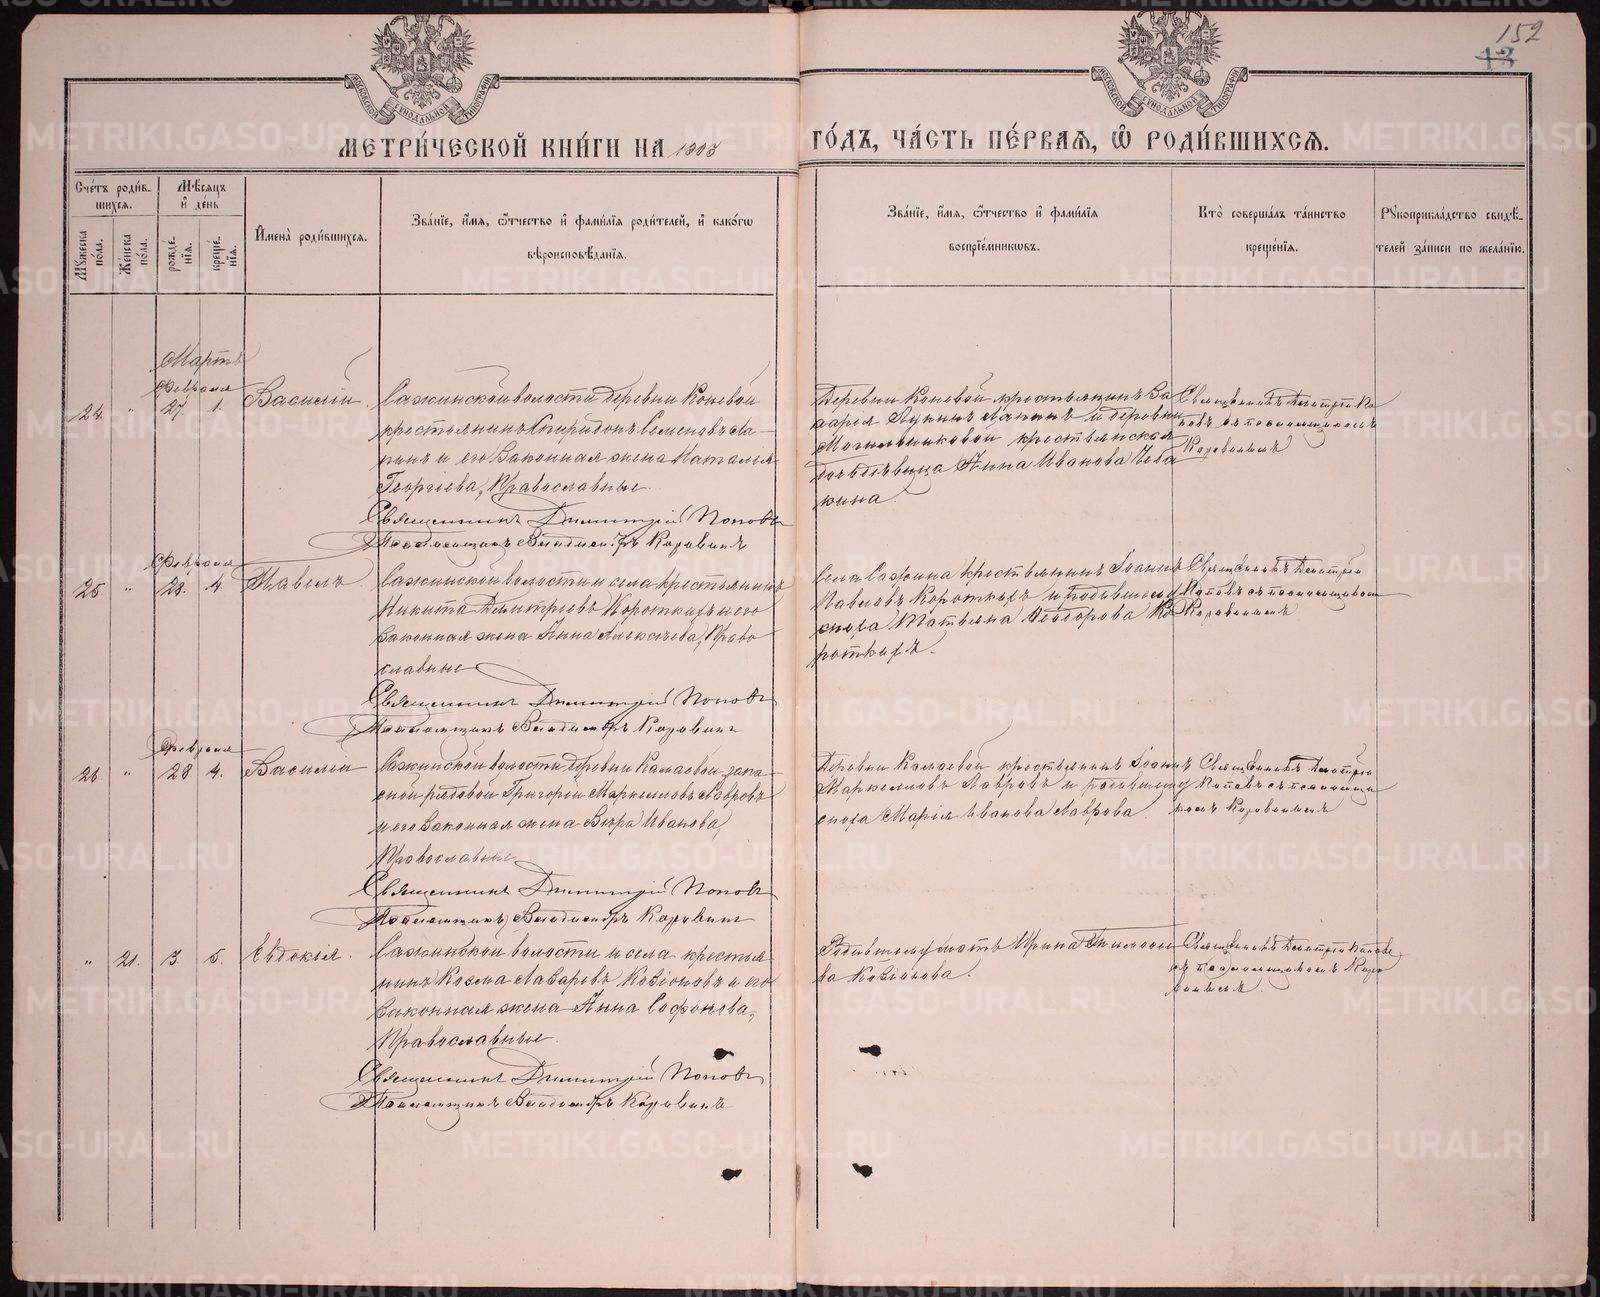 152
13
МОСКОВСКОЙ СУНОДАЛЬНОЙ ТИПОГРАФІИ
МОСКОВСКОЙ СУНОДАЛЬНОЙ ТИПОГРАФІИ
МЕТРИ́ЧЕСКОЙ КНИ́ГИ НА
ГО́ДЪ, ЧА́СТЬ ПЕ́РВАЯ, Ѡ҆ РОДИ́ВШИХСЯ.
Сче́тъ роди́в-
шихся.
Мꙋ́жеска по́ла.
Же́нска по́ла.
Мѣ́сяцъ
и҆ де́нь
рожде́-
нїя.
креще́-
нїя.
И҆мена̀ роди́вшихся.
Зва́нїе, и҆́мя, ѻ҆́тчество и҆ фами́лїя роди́телей, и҆ како́гѡ
вѣроисповѣ́данїя.
Зва́нїе, и҆́мя, ѻ҆́тчество и҆ фами́лїя
воспрїе́мникѡвъ.
Кто̀ соверша́лъ та́инство
креще́нїя.
Рꙋкоприкла́дство свидѣ́-
телей за́писи по жела́нїю.
Мартъ
Февраля
24. " 27. 1. Василій
Сажинской волости деревни Коневой
крестьянинъ Спиридонъ Семеновъ Ла-
пинъ и его законная жена Наталья
Георгіева, Православные.
Священникъ Димитрій Поповъ
Псаломщикъ Владиміръ Коровинъ
Деревни Коневой крестьянинъ За
харія Лапинъ и деревни
Могильниковой крестьянская
дочь дѣвица Анна Иванова Чеба
кина
Священникъ Димитрій По
повъ съ псаломщикомъ
Коровинымъ
Февраля
25. " 28. 4. Павелъ
Сажинской волости и села крестьянинъ
Никита Димитріевъ Короткихъ и его
законная жена Анна Алексѣева, Право
славные
Священникъ Димитрій Поповъ
Псаломщикъ Владиміръ Коровинъ
Села Сажина крестьянинъ Іоаннъ
Павловъ Короткихъ и родившаго
сноха Татьяна Ѳеодорова Ко
роткихъ.
Священникъ Димитрій
Поповъ съ псаломщикомъ
Коровинымъ
Февраля
26. " 28 4. Василій
Сажинской волости деревни Камаевой запа-
сной рядовой Григорій Маркелловъ Лавровъ
и его законная жена Вѣра Иванова,
Православные
Священникъ Димитрій Поповъ
Псаломщикъ Владиміръ Коровинъ
Деревни Камаевой крестьянинъ Іоаннъ
Маркелловъ Лавровъ и родившему
сноха Марія Иванова Лаврова
Священникъ Димитрій
Поповъ съ псаломщи
комъ Коровинымъ
" 21. 3 5. Евдокія.
Сажинской волости и села крестья
нинъ Козма Лазаревъ Козіоновъ и его
законная жена Анна Софонова,
Православные.
Священникъ Димитрій Поповъ
Псаломщикъ Владиміръ Коровинъ
Родившему мать Ирина
ва Козіонова.
Священникъ Димитрій Поповъ
съ псаломщикомъ Коро
винымъ.
METRIKI.GASO-URAL.RU